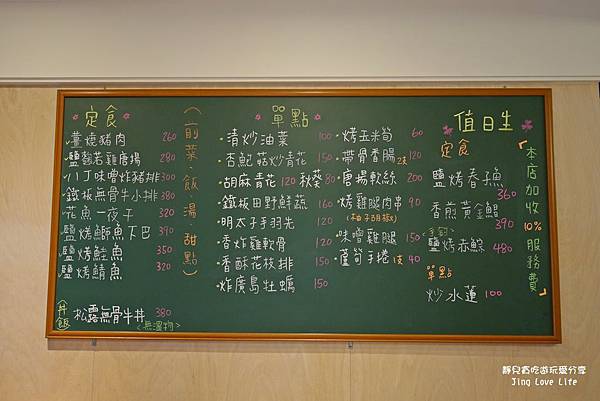 定食
薑燒豬肉 260
鹽麴若雞唐揚 280
八丁味噌炸豬排 300
鐵板無骨牛小排 380
花魚一夜干 320
鹽烤鰤魚下巴 390
鹽烤鮭魚 350
鹽烤鯖魚 320
丼飯
松露無骨牛丼 380
<無溫物>
(前菜・飯・湯・甜點)
單點
清炒油菜 100
杏鮑菇炒青花 150
胡麻青花 120 秋葵 80
鐵板田野鮮蔬 160
明太子手羽先 120
香炸雞軟骨 120
香酥花枝排 150
炸廣島牡蠣 150
烤玉米筍 60
帶骨香腸 2支 120
唐揚軟絲 200
烤雞腿肉串 90
(柚子胡椒)
味噌雞腿 150
蘆筍手捲 1支 40
值日生
定食
鹽烤春子魚 360
香煎黃金鯧 390
鹽烤赤鯮 480
單點
炒水蓮 100
本店加收10%服務費
靜兒賣吃遊玩愛分享
Jing Love Life